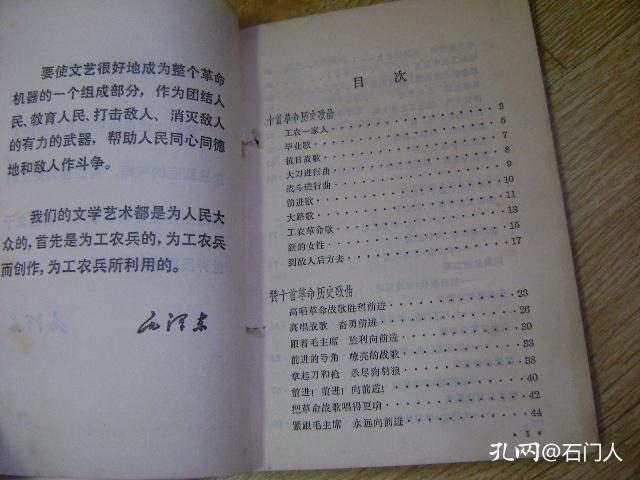 要使文艺很好地成为整个革命
机器的一个组成部分，作为团结人
民、教育人民、打击敌人、消灭敌人
的有力的武器，帮助人民同心同德
地和敌人作斗争。
我们的文学艺术都是为人民大
众的，首先是为工农兵的，为工农兵
而创作，为工农兵所利用的。
毛泽东
目 次
十首革命历史歌曲
工农一家人 3
毕业歌 5
抗日战歌 7
大刀进行曲 8
战斗进行曲 9
前进歌 10
大路歌 11
工农革命歌 13
新的女性 15
到敌人后方去 17
赞十首革命历史歌曲
高唱革命战歌胜利前进 23
高唱战歌 奋勇前进 26
跟着毛主席 胜利向前进 30
前进的号角 嘹亮的战歌 33
拿起刀和枪 杀尽狗豺狼 38
前进！前进！向前进！ 40
把革命战歌唱得更响 42
紧跟毛主席 永远向前进 44
1
孔网@石门人